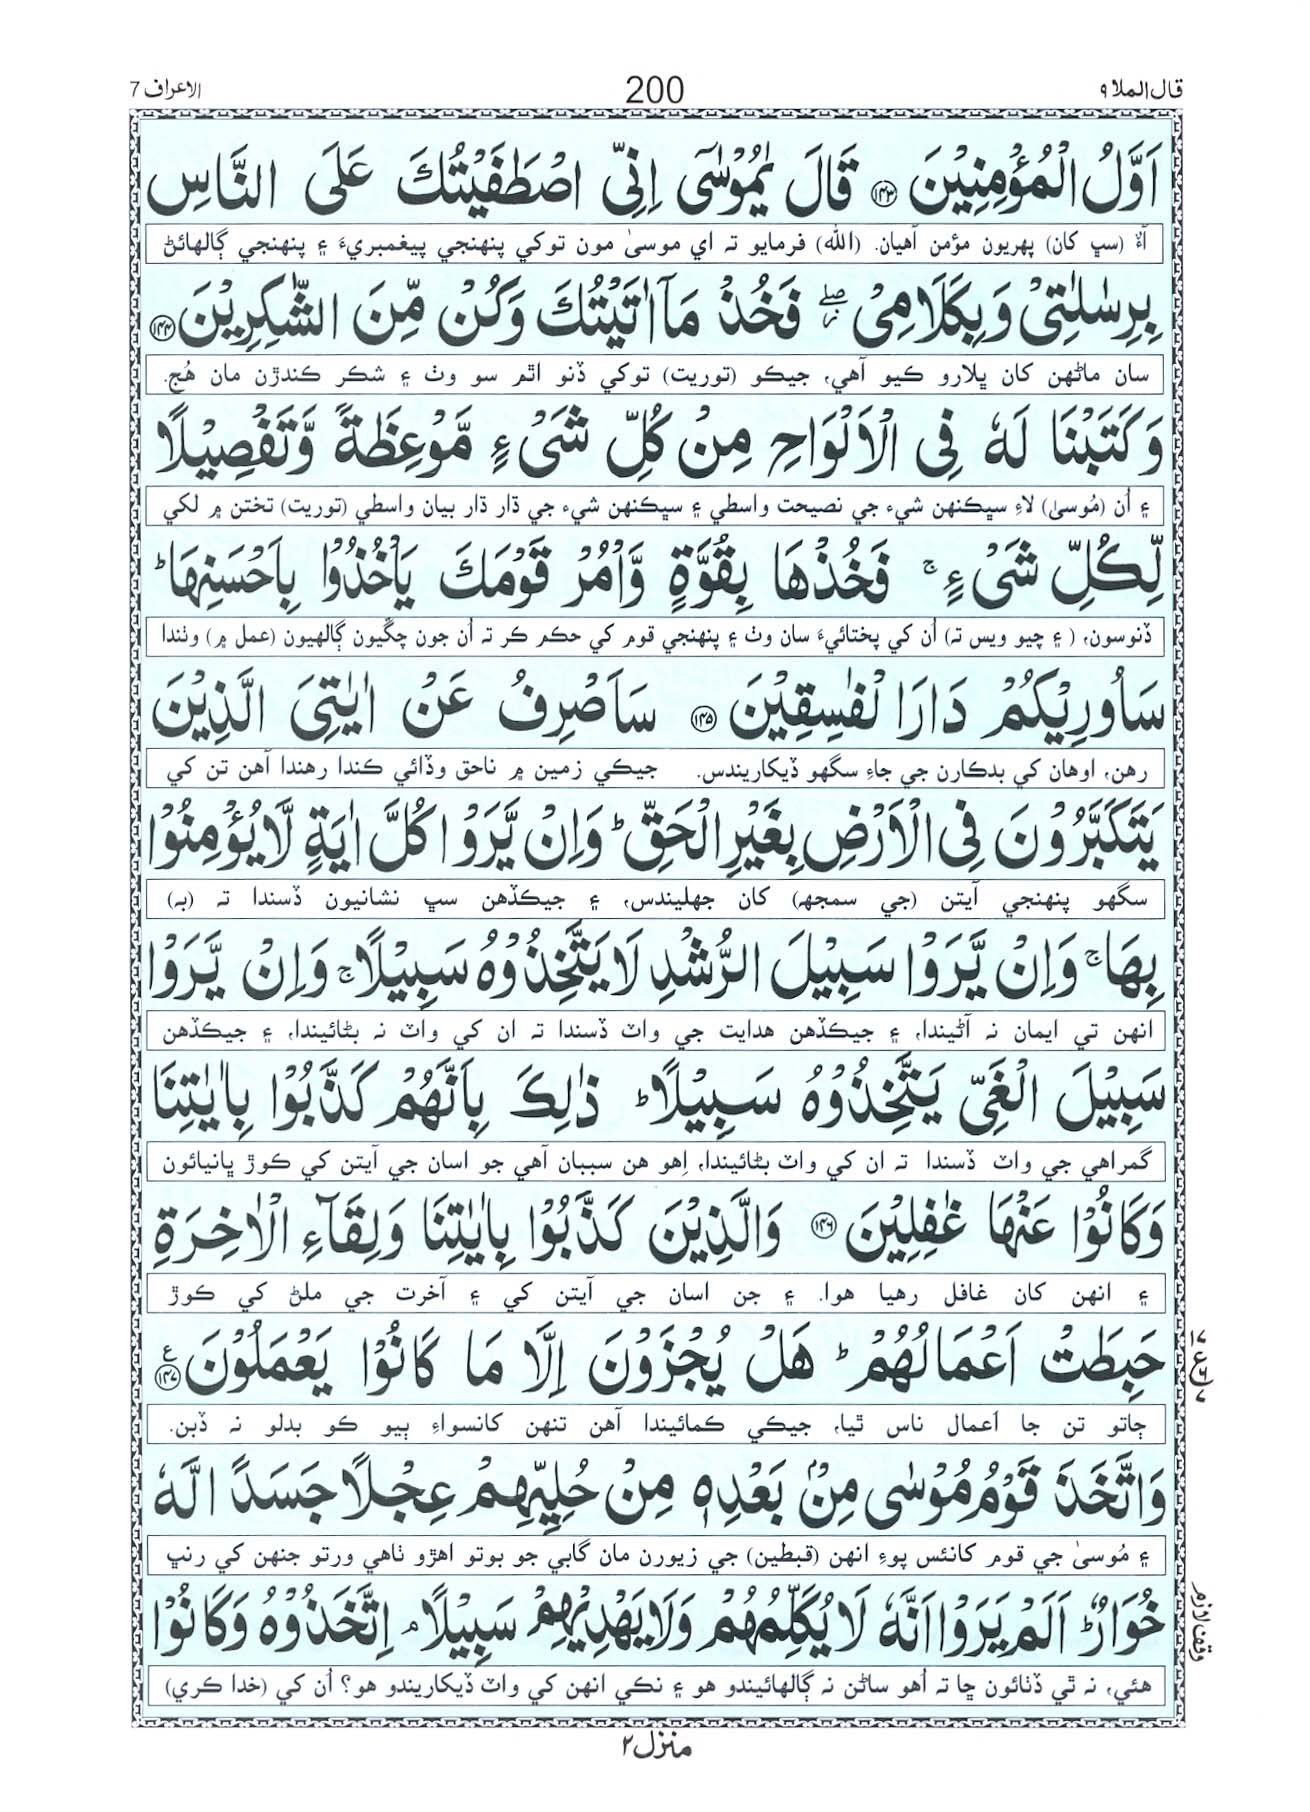 قال الملا ٩
200
الاعراف 7
اَوَّلُ الْمُؤْمِنِيْنَ ﴿۱۴۳﴾ قَالَ يٰمُوْسٰٓى اِنِّى اصْطَفَيْتُكَ عَلَى النَّاسِ
آءٌ (سڀ کان) پهريون مؤمن آهيان. (الله) فرمايو تہ اي موسىٰ مون توکي پنهنجي پيغمبريءَ ۽ پنهنجي ڳالهائڻ
بِرِسٰلٰتِىْ وَبِكَلَامِىْ ۖ فَخُذْ مَاۤ اٰتَيْتُكَ وَكُنْ مِّنَ الشّٰكِرِيْنَ ﴿۱۴۴﴾
سان ماڻهن کان ڀلارو ڪيو آهي، جيڪو (توريت) توکي ڏنو اٿم سو وٺ ۽ شڪر ڪندڙن مان هُج.
وَكَتَبْنَا لَهٗ فِى الْاَلْوَاحِ مِنْ كُلِّ شَىْءٍ مَّوْعِظَةً وَّتَفْصِيْلًا
۽ اُن (مُوسىٰ) لاءِ سڀڪنهن شيء جي نصيحت واسطي ۽ سڀڪنهن شيء جي ڌار ڌار بيان واسطي (توريت) تختن ۾ لکي
لِّكُلِّ شَىْءٍ ۚ فَخُذْهَا بِقُوَّةٍ وَّاْمُرْ قَوْمَكَ يَاْخُذُوْا بِاَحْسَنِهَا ؕ
ڏنوسون، ( ۽ چيو ويس تہ) اُن کي پختائيءَ سان وٺ ۽ پنهنجي قوم کي حڪم ڪر تہ اُن جون چڱيون ڳالهيون (عمل ۾) وٺندا
سَاُورِيْكُمْ دَارَ الْفٰسِقِيْنَ ﴿۱۴۵﴾ سَاَصْرِفُ عَنْ اٰيٰتِىَ الَّذِيْنَ
رهن، اوهان کي بدڪارن جي جاءِ سگهو ڏيکاريندس. جيڪي زمين ۾ ناحق وڏائي ڪندا رهندا آهن تن کي
يَتَكَبَّرُوْنَ فِى الْاَرْضِ بِغَيْرِ الْحَقِّ ؕ وَاِنْ يَّرَوْا كُلَّ اٰيَةٍ لَّا يُؤْمِنُوْا
سگهو پنهنجي آيتن (جي سمجهہ) کان جهليندس، ۽ جيڪڏهن سڀ نشانيون ڏسندا تہ (بہ)
بِهَا ۚ وَاِنْ يَّرَوْا سَبِيْلَ الرُّشْدِ لَا يَتَّخِذُوْهُ سَبِيْلًا ۚ وَاِنْ يَّرَوْا
انهن تي ايمان نہ آڻيندا، ۽ جيڪڏهن هدايت جي واٽ ڏسندا تہ ان کي واٽ نہ بڻائيندا، ۽ جيڪڏهن
سَبِيْلَ الْغَىِّ يَتَّخِذُوْهُ سَبِيْلًا ؕ ذٰلِكَ بِاَنَّهُمْ كَذَّبُوْا بِاٰيٰتِنَا
گمراهي جي واٽ ڏسندا تہ ان کي واٽ بڻائيندا، اِهو هن سببان آهي جو اسان جي آيتن کي ڪوڙ ڀانيائون
وَكَانُوْا عَنْهَا غٰفِلِيْنَ ﴿۱۴۶﴾ وَالَّذِيْنَ كَذَّبُوْا بِاٰيٰتِنَا وَلِقَآءِ الْاٰخِرَةِ
۽ انهن کان غافل رهيا هوا. ۽ جن اسان جي آيتن کي ۽ آخرت جي ملڻ کي ڪوڙ
حَبِطَتْ اَعْمَالُهُمْ ؕ هَلْ يُجْزَوْنَ اِلَّا مَا كَانُوْا يَعْمَلُوْنَ ﴿۱۴۷﴾ ع
ڄاتو تن جا اَعمال ناس ٿيا، جيڪي ڪمائيندا آهن تنهن کانسواءِ ٻيو ڪو بدلو نہ ڏبن.
وَاتَّخَذَ قَوْمُ مُوْسٰى مِنْۢ بَعْدِهٖ مِنْ حُلِيِّهِمْ عِجْلًا جَسَدًا لَّهٗ
۽ مُوسىٰ جي قوم کانئس پوءِ انهن (قبطين) جي زيورن مان گابي جو بوتو اهڙو ٺاهي ورتو جنهن کي رنڀ
خُوَارٌ ؕ اَلَمْ يَرَوْا اَنَّهٗ لَا يُكَلِّمُهُمْ وَلَا يَهْدِيْهِمْ سَبِيْلًا ۘ اِتَّخَذُوْهُ وَكَانُوْا
وقف لازم
هئي، نہ ٿي ڏٺائون ڇا تہ اُهو ساڻن نہ ڳالهائيندو هو ۽ نڪي انهن کي واٽ ڏيکاريندو هو؟ اُن کي (خدا ڪري)
منزل ٢